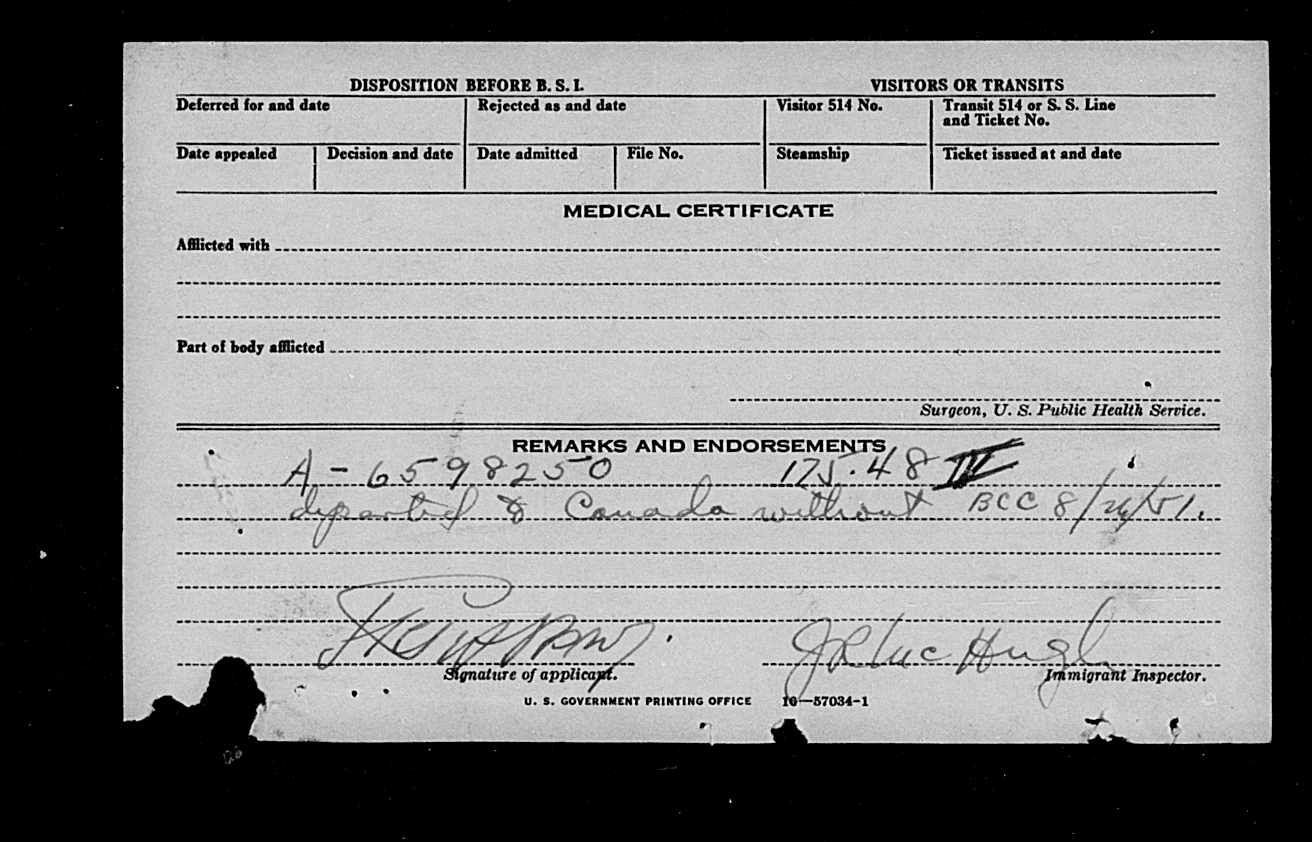 DISPOSITION BEFORE B. S. I.
VISITORS OR TRANSITS
Deferred for and date
Rejected as and date
Visitor 514 No.
Transit 514 or S. S. Line
and Ticket No.
Date appealed
Decision and date
Date admitted
File No.
Steamship
Ticket issued at and date
MEDICAL CERTIFICATE
Afflicted with
Part of body afflicted
Surgeon, U. S. Public Health Service.
REMARKS AND ENDORSEMENTS
A-6598250 175.48 IV
departed to Canada without BCC 8/ /51.
Signature of applicant.
Immigrant Inspector.
U. S. GOVERNMENT PRINTING OFFICE 16—57034-1